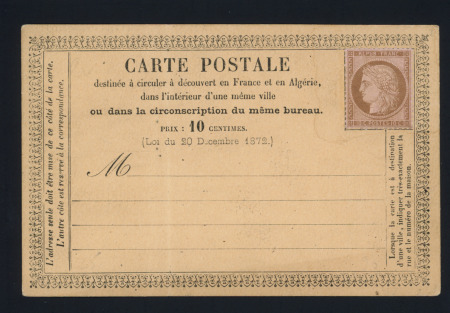 CARTE POSTALE
destinée à circuler à découvert en France et en Algérie,
dans l'intérieur d'une même ville
ou dans la circonscription du même bureau.
PRIX : 10 CENTIMES.
(Loi du 20 Décembre 1872.)
M
REPUB. FRANC.
10 C. POSTES 10 C.
L'adresse seule doit être mise de ce côté de la carte.
L'autre côté est réservé à la correspondance.
Lorsque la carte est à destination
d'une ville, indiquer très-exactement la
rue et le numéro de la maison.